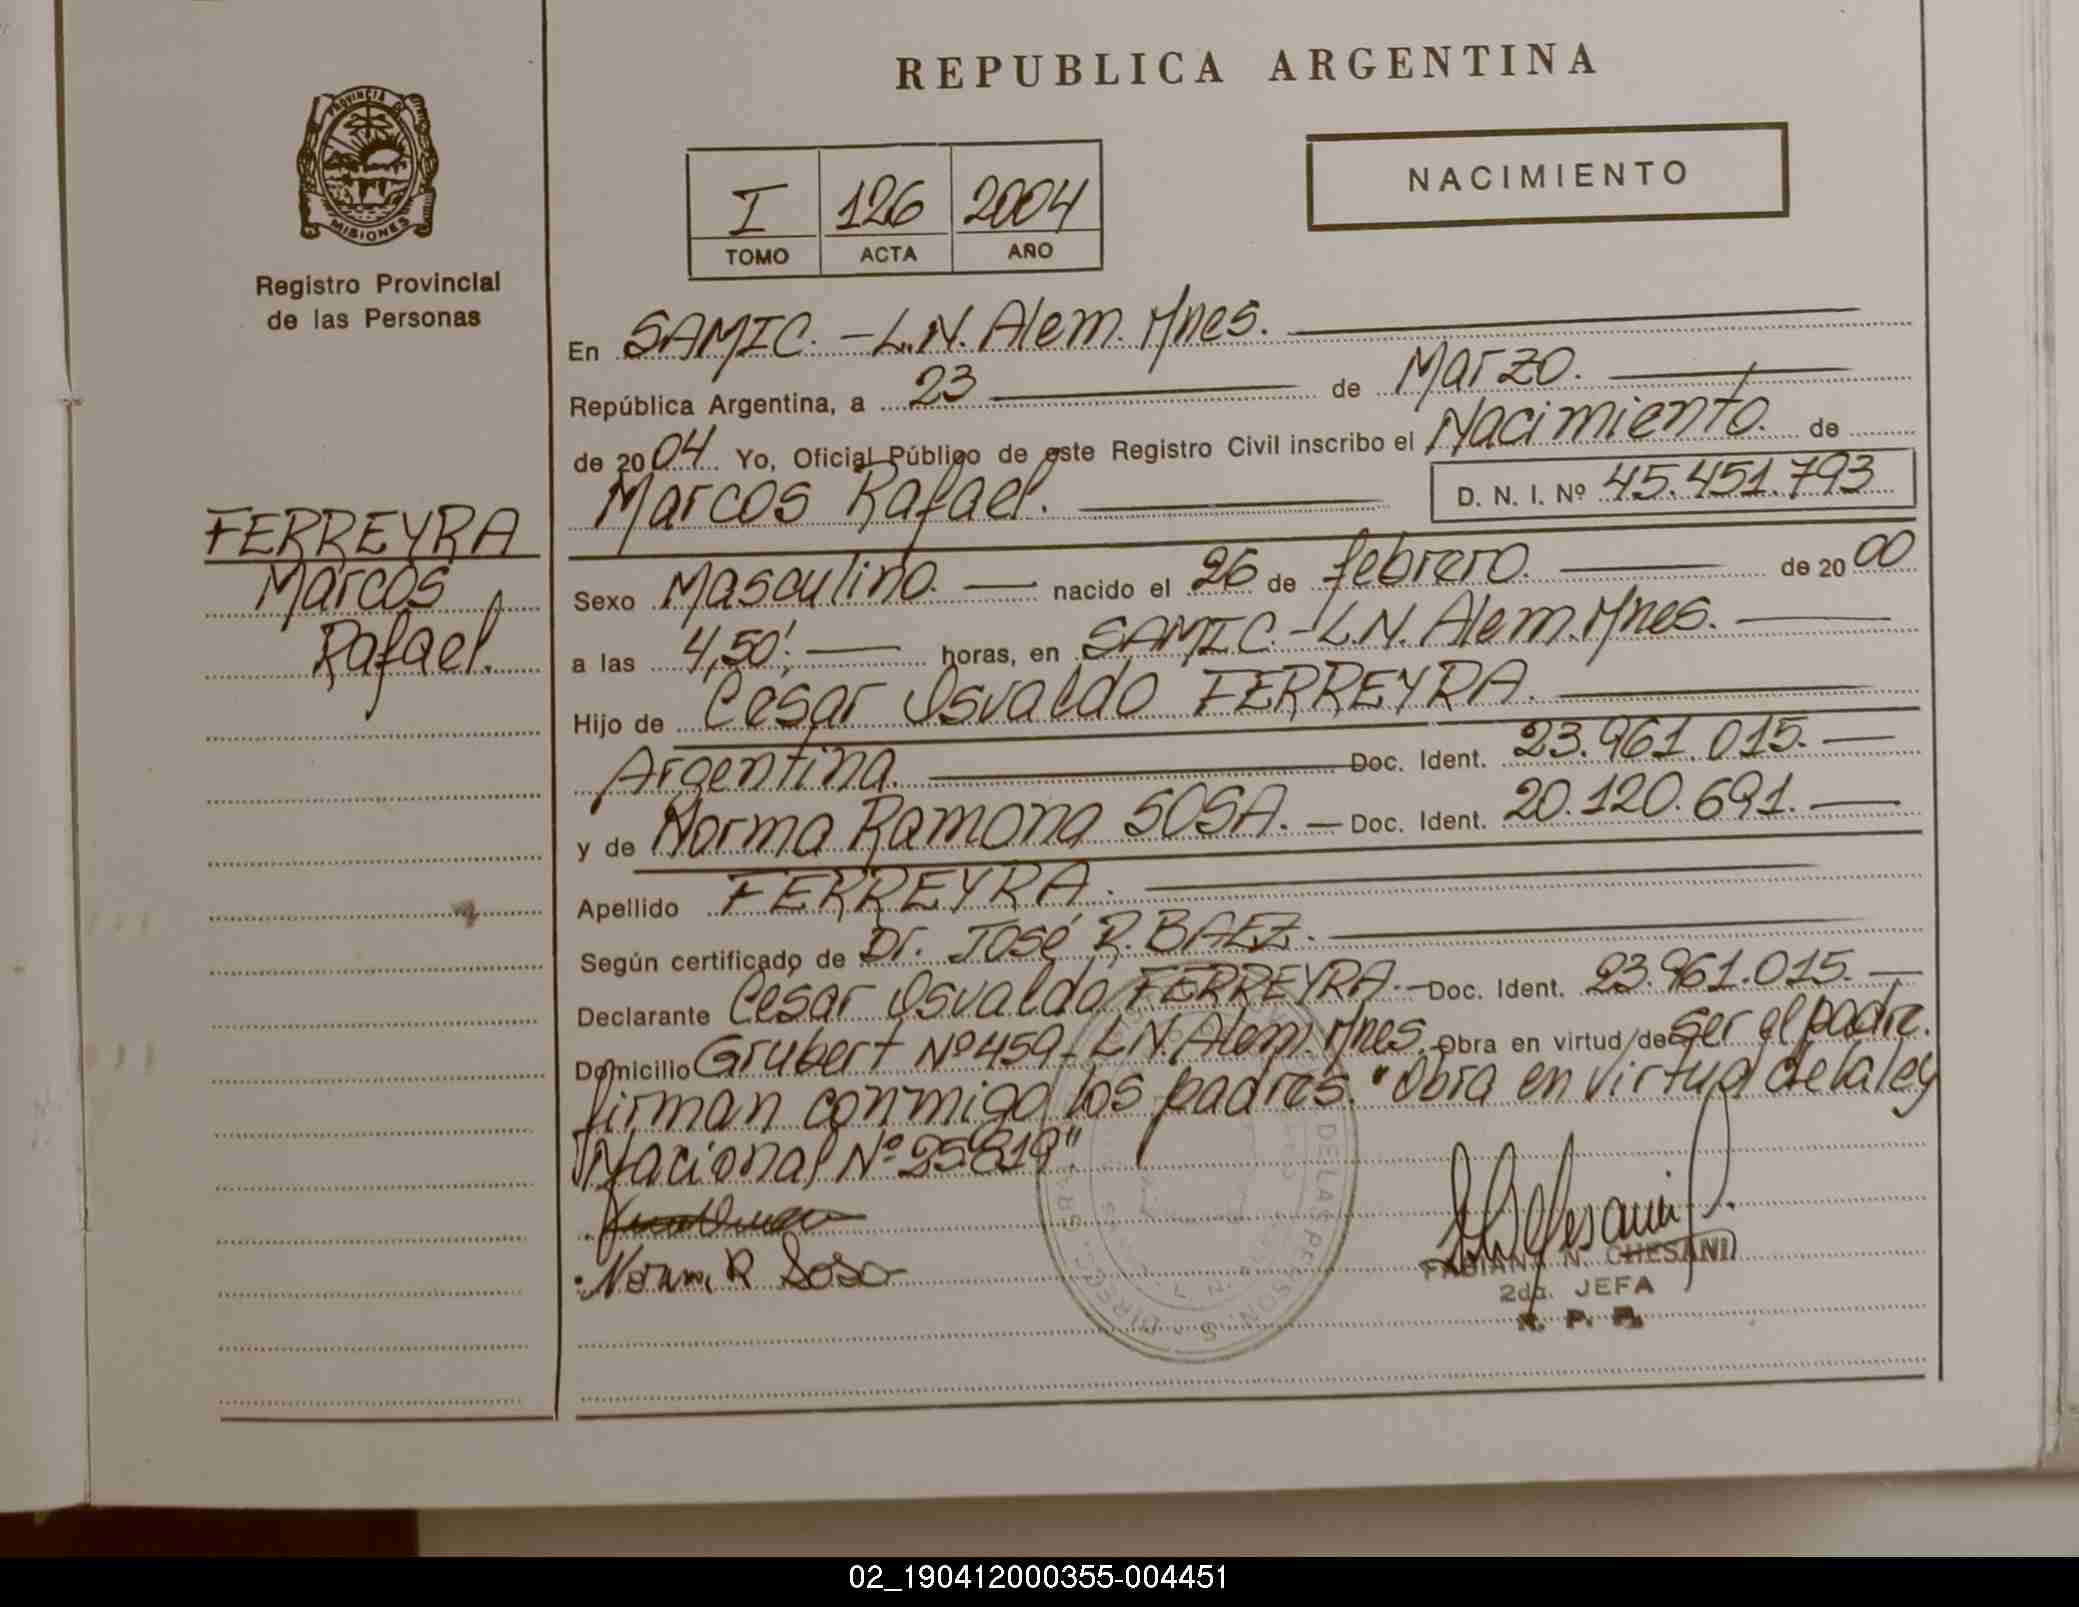 REPUBLICA ARGENTINA
PROVINCIA DE
MISIONES
Registro Provincial
de las Personas
NACIMIENTO
I 126 2004
TOMO ACTA AÑO
En SAMIC. - L.N. Alem. Mnes.
República Argentina, a 23 de Marzo.
de 2004 Yo, Oficial Público de este Registro Civil inscribo el Nacimiento. de
Marcos Rafael. D. N. I. Nº 45.451.793
FERREYRA
Marcos
Rafael.
Sexo Masculino. nacido el 26 de febrero. de 2000
a las 4,50'. horas, en SAMIC. - L.N. Alem. Mnes.
Hijo de Cesar Osvaldo FERREYRA.
Argentina. Doc. Ident. 23.961.015.
y de Norma Ramona SOSA. Doc. Ident. 20.120.691.
Apellido FERREYRA.
Según certificado de Dr. José R. BAEZ.
Declarante Cesar Osvaldo FERREYRA. Doc. Ident. 23.961.015.
Domicilio Grubert Nº 459 - L.N. Alem. Mnes. Obra en virtud de ser el padre.
firman conmigo los padres. "Obra en virtud de la ley
Nacional Nº 25819".
Norma R Sosa
FABIANA N. CHESANI
2da. JEFA
R. P. P.
02_190412000355-004451